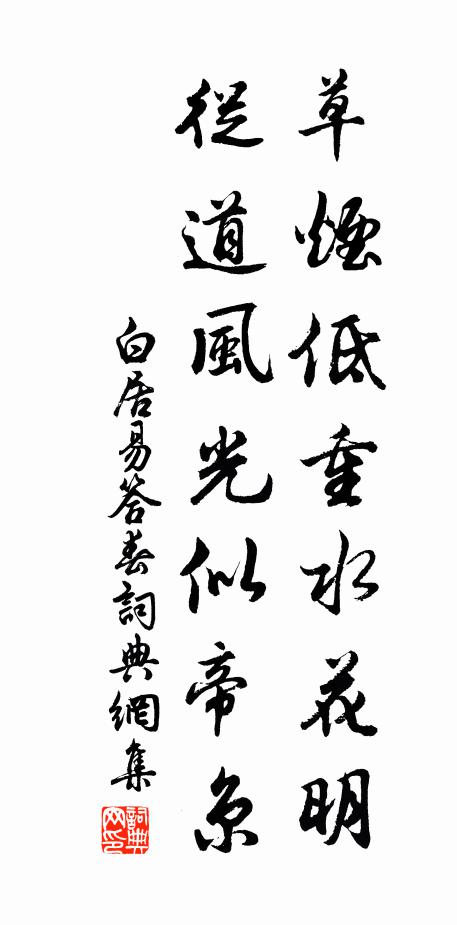 草煙低重水花明
從道風光似帝京
白居易答春詞典網集
詞典網印